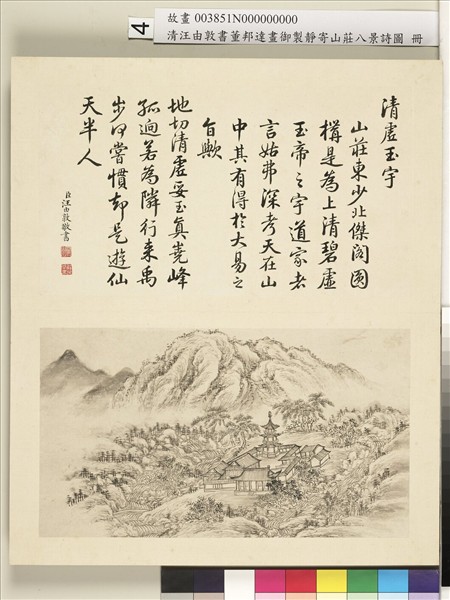 4
故畫 003851N000000000
清汪由敦書董邦達畫御製靜寄山莊八景詩圖 冊
清虛玉宇
山莊東少北傑閣圓
構是為上清碧虛
玉帝之宇道家者
言姑弗深考天在山
中其有得於大易之
旨歟
地切清虛妥玉真堯峰
孤迥若為隣行來禹
步何嘗慣却是遊仙
天半人
臣汪由敦敬書